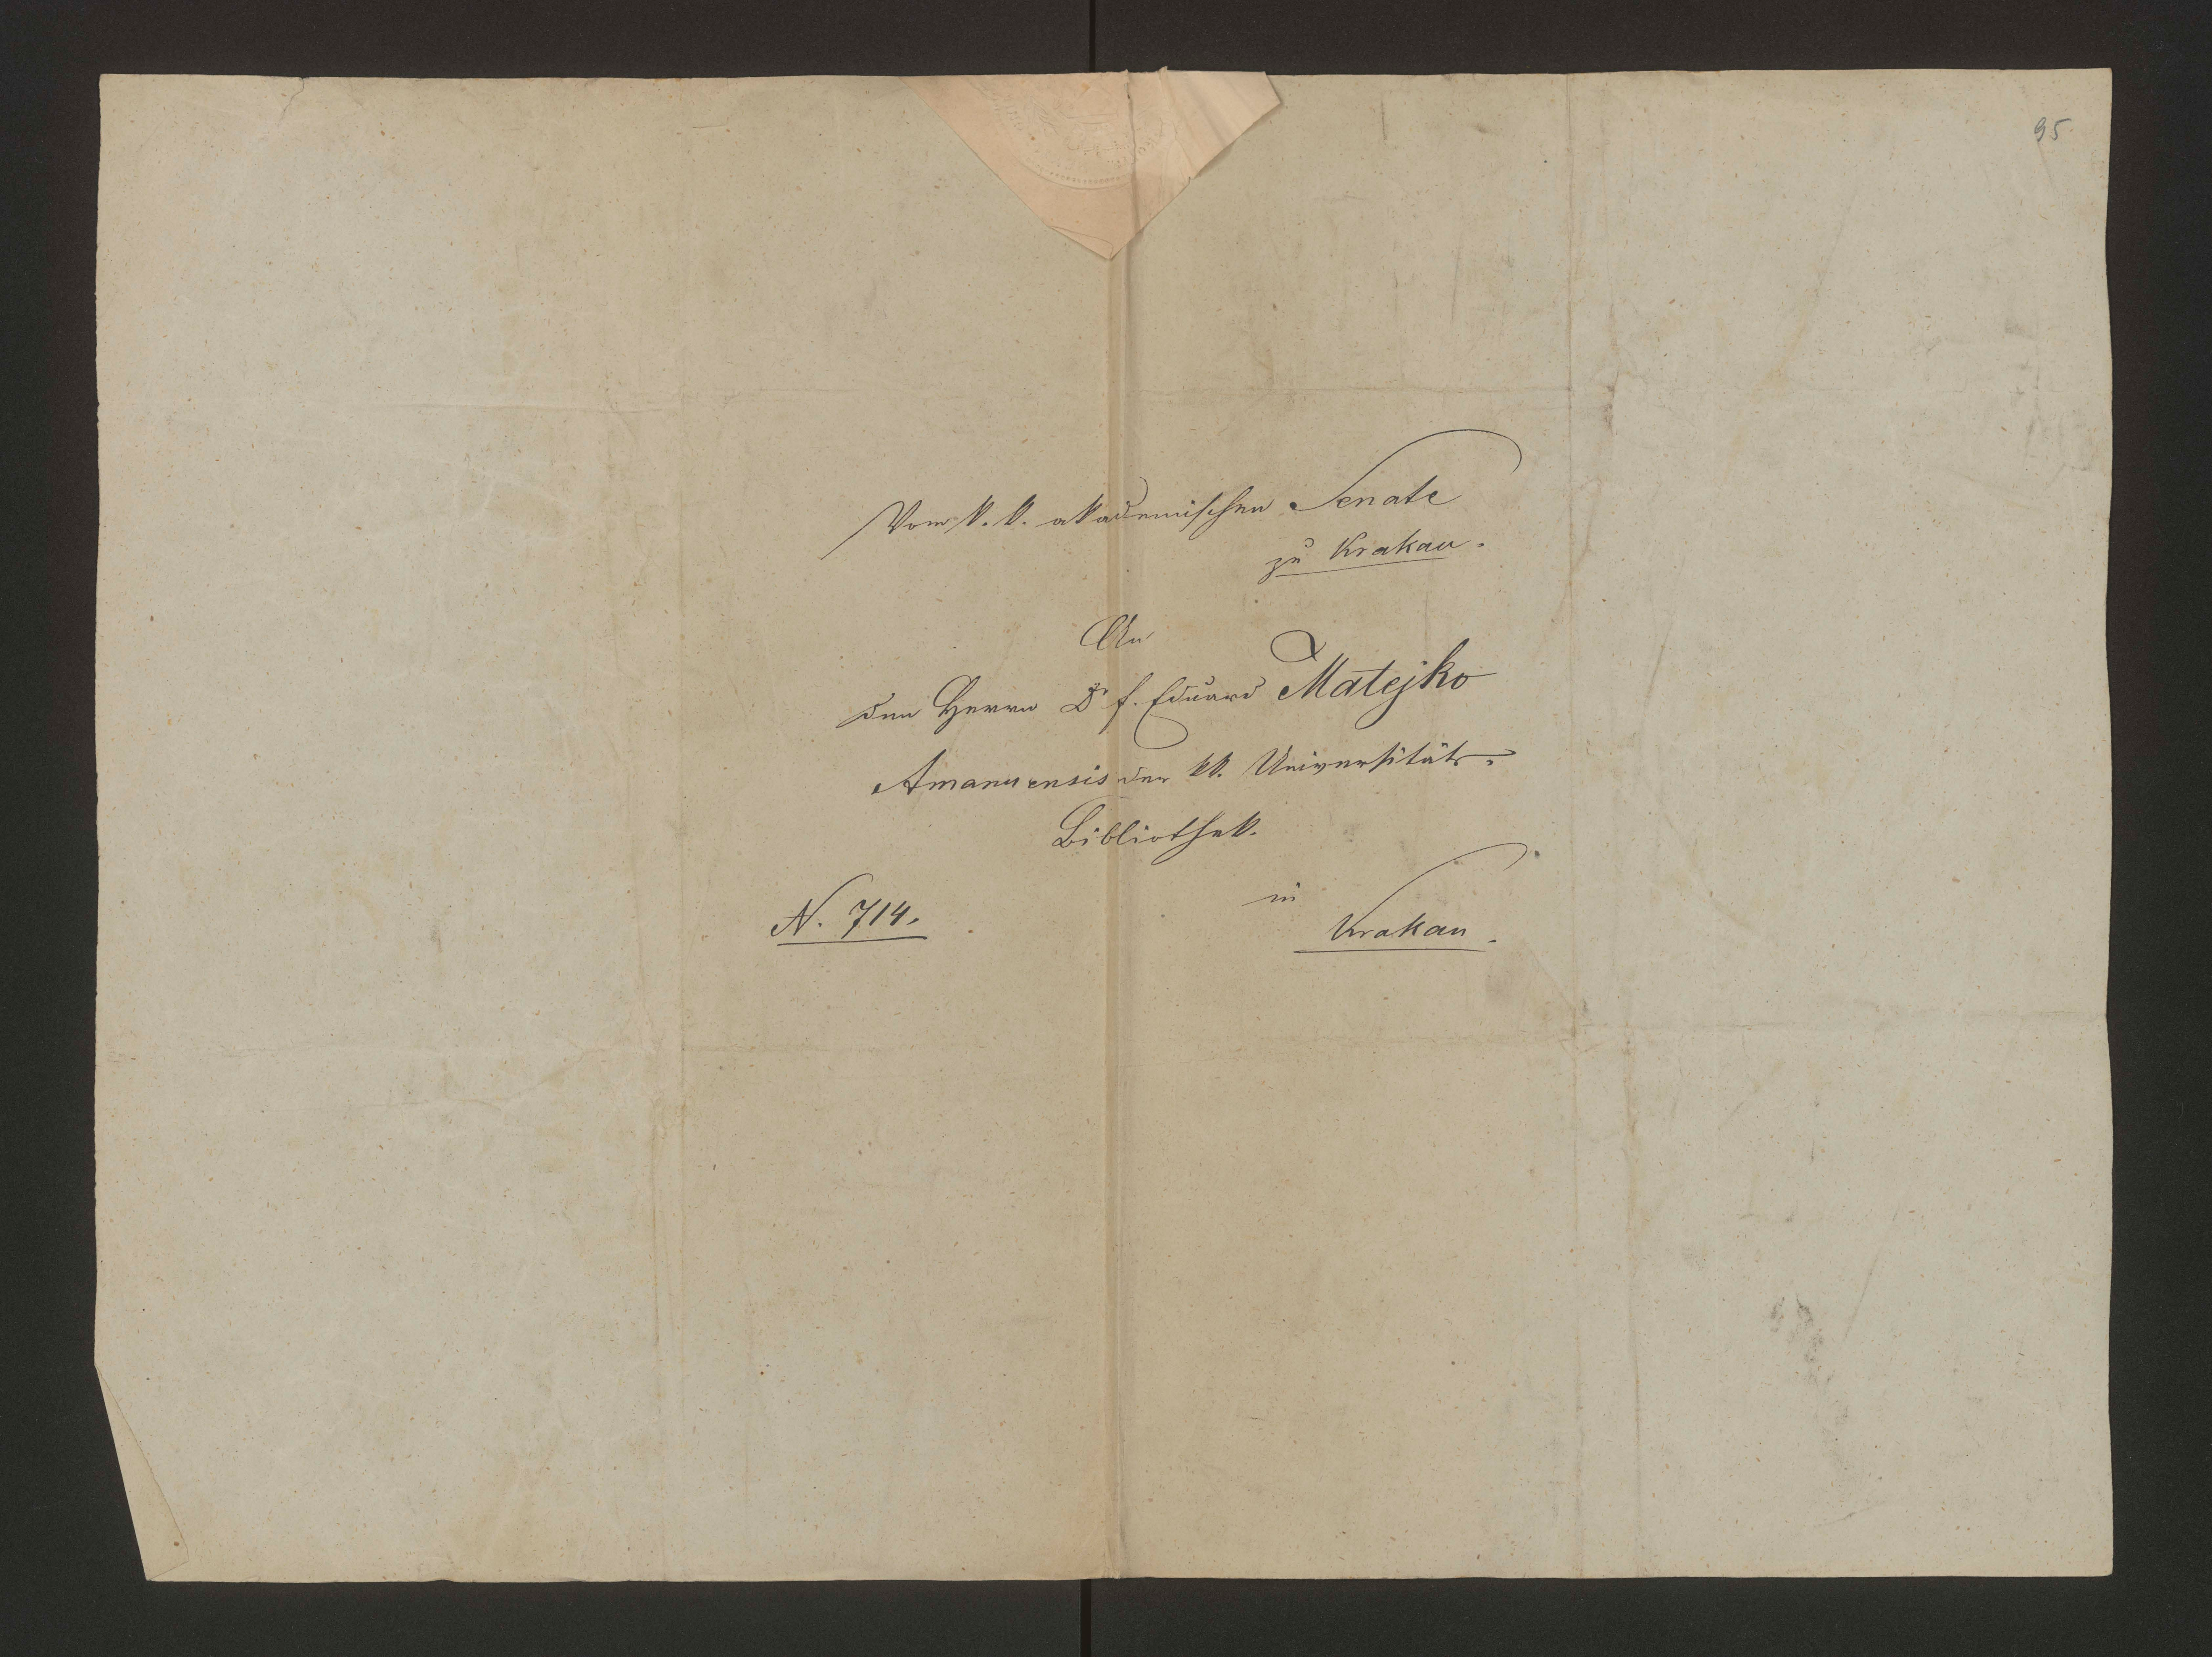 95
Vom k. k. akademischen Senate
zu Krakau.
An
den Herrn Dr f. Eduard Matejko
Amanuensis der kk. Universitäts-
Bibliothek.
in
N. 714.
Krakau.